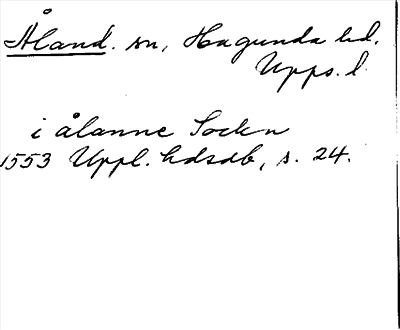 Åland. sn, Hagunda hd.
Upps. l.
i ålanne Sockn
1553 Uppl. hdsdb, s. 24.